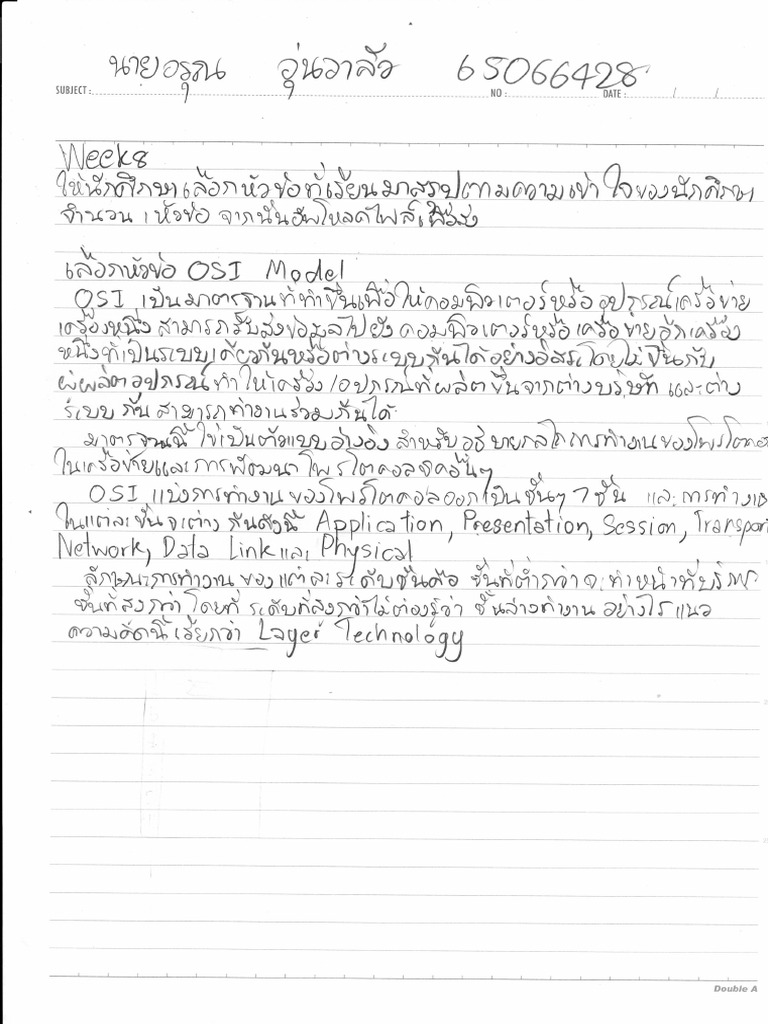 นายอรุณ อุ่นวาลัว 65066428
SUBJECT : NO : DATE : / /
Week8
ให้นักศึกษาเลือกหัวข้อที่เรียนมาสรุปตามความเข้าใจของนักศึกษา
จำนวน 1 หัวข้อ จากนั้นอัพโหลดไฟล์เพื่อส่ง
เลือกหัวข้อ OSI Model
OSI เป็นมาตรฐานที่ทำขึ้นเพื่อให้คอมพิวเตอร์หรืออุปกรณ์เครือข่าย
เครื่องหนึ่งสามารถรับส่งข้อมูลไปยังคอมพิวเตอร์หรือเครือข่ายอีกเครื่อง
หนึ่งที่เป็นระบบเดียวกันหรือต่างระบบกันได้อย่างอิสระโดยไม่ขึ้นกับ
ผู้ผลิตอุปกรณ์ ทำให้เครื่อง/อุปกรณ์ที่ผลิตขึ้นจากต่างบริษัท และต่าง
ระบบกันสามารถทำงานร่วมกันได้
มาตรฐานนี้ใช้เป็นตัวแบบอ้างอิง สำหรับอธิบายกลไกการทำงานของโพรโตคอล
ในเครือข่ายและการพัฒนาโพรโตคอลอื่นๆ
OSI แบ่งการทำงานของโพรโตคอลออกเป็นชั้นๆ 7 ชั้น และการทำงาน
ในแต่ละชั้นจะต่างกันดังนี้ Application, Presentation, Session, Transport
Network, Data Link และ Physical
ลักษณะการทำงานของแต่ละระดับชั้นคือ ชั้นที่ต่ำกว่าจะทำหน้าที่บริการ
ชั้นที่สูงกว่า โดยที่ระดับที่สูงกว่าไม่ต้องรู้ว่า ชั้นล่างทำงานอย่างไร แนว
ความคิดนี้เรียกว่า Layer Technology
Double A